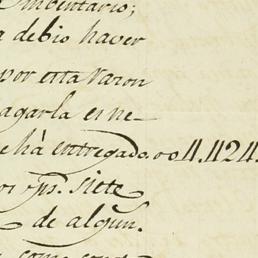 Imbentario;
a debio haver
por esta razon
agarla es ne-
e hà entregado. 00 4.424.
os rps. siete
de algun.